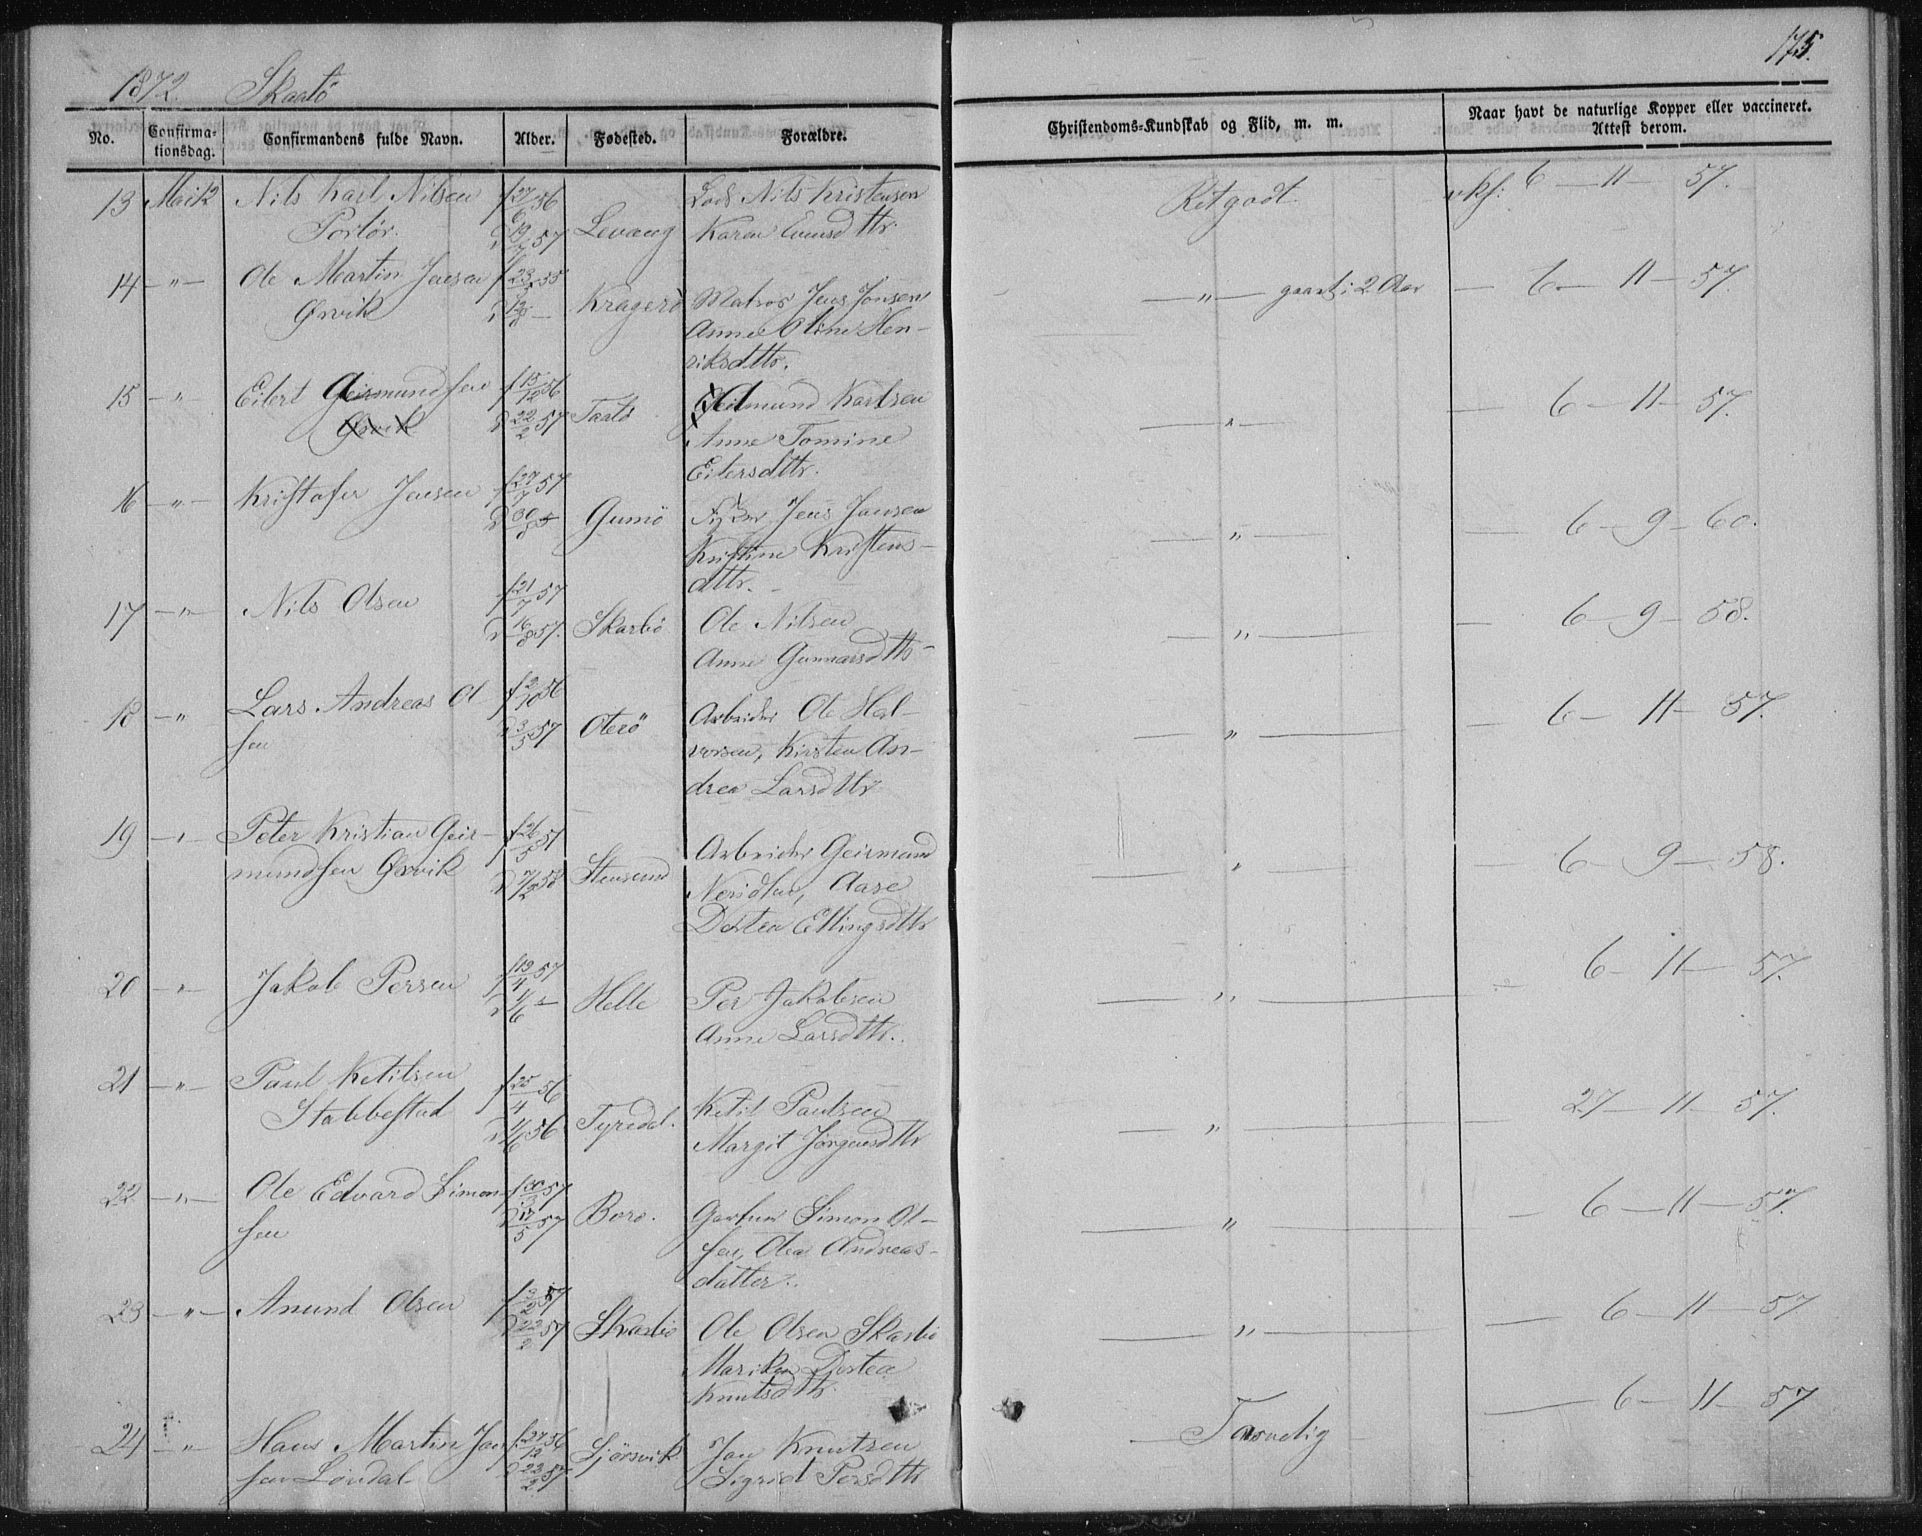 175.
1872. Skaatö
No.
Confirma-
tionsdag.
Confirmandens fulde Navn.
Alder.
Fødested.
Forældre.
Christendoms-Kundskab og Flid, m. m.
Naar havt de naturlige Kopper eller vaccineret.
Attest derom.
13 Nils Karl Nilsen f 27/6 56 Lods Nils Kristensen Ret godt. vkf: 6 — 11 — 57.
Portör. d 19/7 57 Levang Karen Evensdttr.
14 — " — Ole Martin Jensen f 23/5 55 Kragerö Matros Jens Jonsen — " — gaaet i 2 Aar — 6 — 11 — 57.
Ørvik Anne Oline Hen-
riksdttr.
15 — " — Eilert Geirmundsen f 15/12 56 Taatö Geirmund Karlsen — " — — 6 — 11 — 57.
Ørvik d 22/2 57 Anne Tomine
Eilersdttr.
16 — " — Kristofer Jensen f 27/7 57 Gumö Jens Jansen — " — — 6 — 9 — 60.
d 30/8 Kristine Kristens-
dttr.
17 — " — Nils Olsen f 21/7 57 Ole Nilsen — " — — 6 — 9 — 58.
d 16/8 57. Skarbö Anne Gunnarsdttr
18 — " Lars Andreas Ol- f 2/10 56 Oterö Arbeider Ole Hal- — " — — 6 — 11 — 57.
sen d 3/5 57 vorsen, Kirsten An-
drea Larsdttr
19 — " — Peter Kristian Geir- f 26/5 51 Arbeider Geirmund — " — — 6 — 9 — 58.
mundsen Ørvik d 7/2 58 Stensund Aase
Dortea Ellingsdttr
20 — " — Jakob Persen f 19/4 57 Helle Per Jakobsen — " — 6 — 11 — 57.
d 1/6 — Anne Larsdttr.
21 — " — Paul Ketilsen f 25/4 56 Ketil Paulsen — " — 27 — 11 — 57.
Stabbestad d 1/6 56 Tyredal. Margit Jörgensdttr
22 — " — Ole Edvard Simon- f 30/3 57 Borö. Gartner Simon Ol- — " — — 6 — 11 — 57.
sen d 17/5 57 sen, Olea Andreas-
datter.
23 — " — Anund Olsen f 3/2 57 Skarbö Ole Olsen Skarbö — " — — 6 — 11 — 57
d 22/2 57 Mariken Dortea
Knutsdttr.
24 — " — Hans Martin Jan- f 27/12 56 Jan Knutsen — Tarvelig — 6 — 11 — 57
sen Lövdal d 22/2 57 Sigrid Persdttr